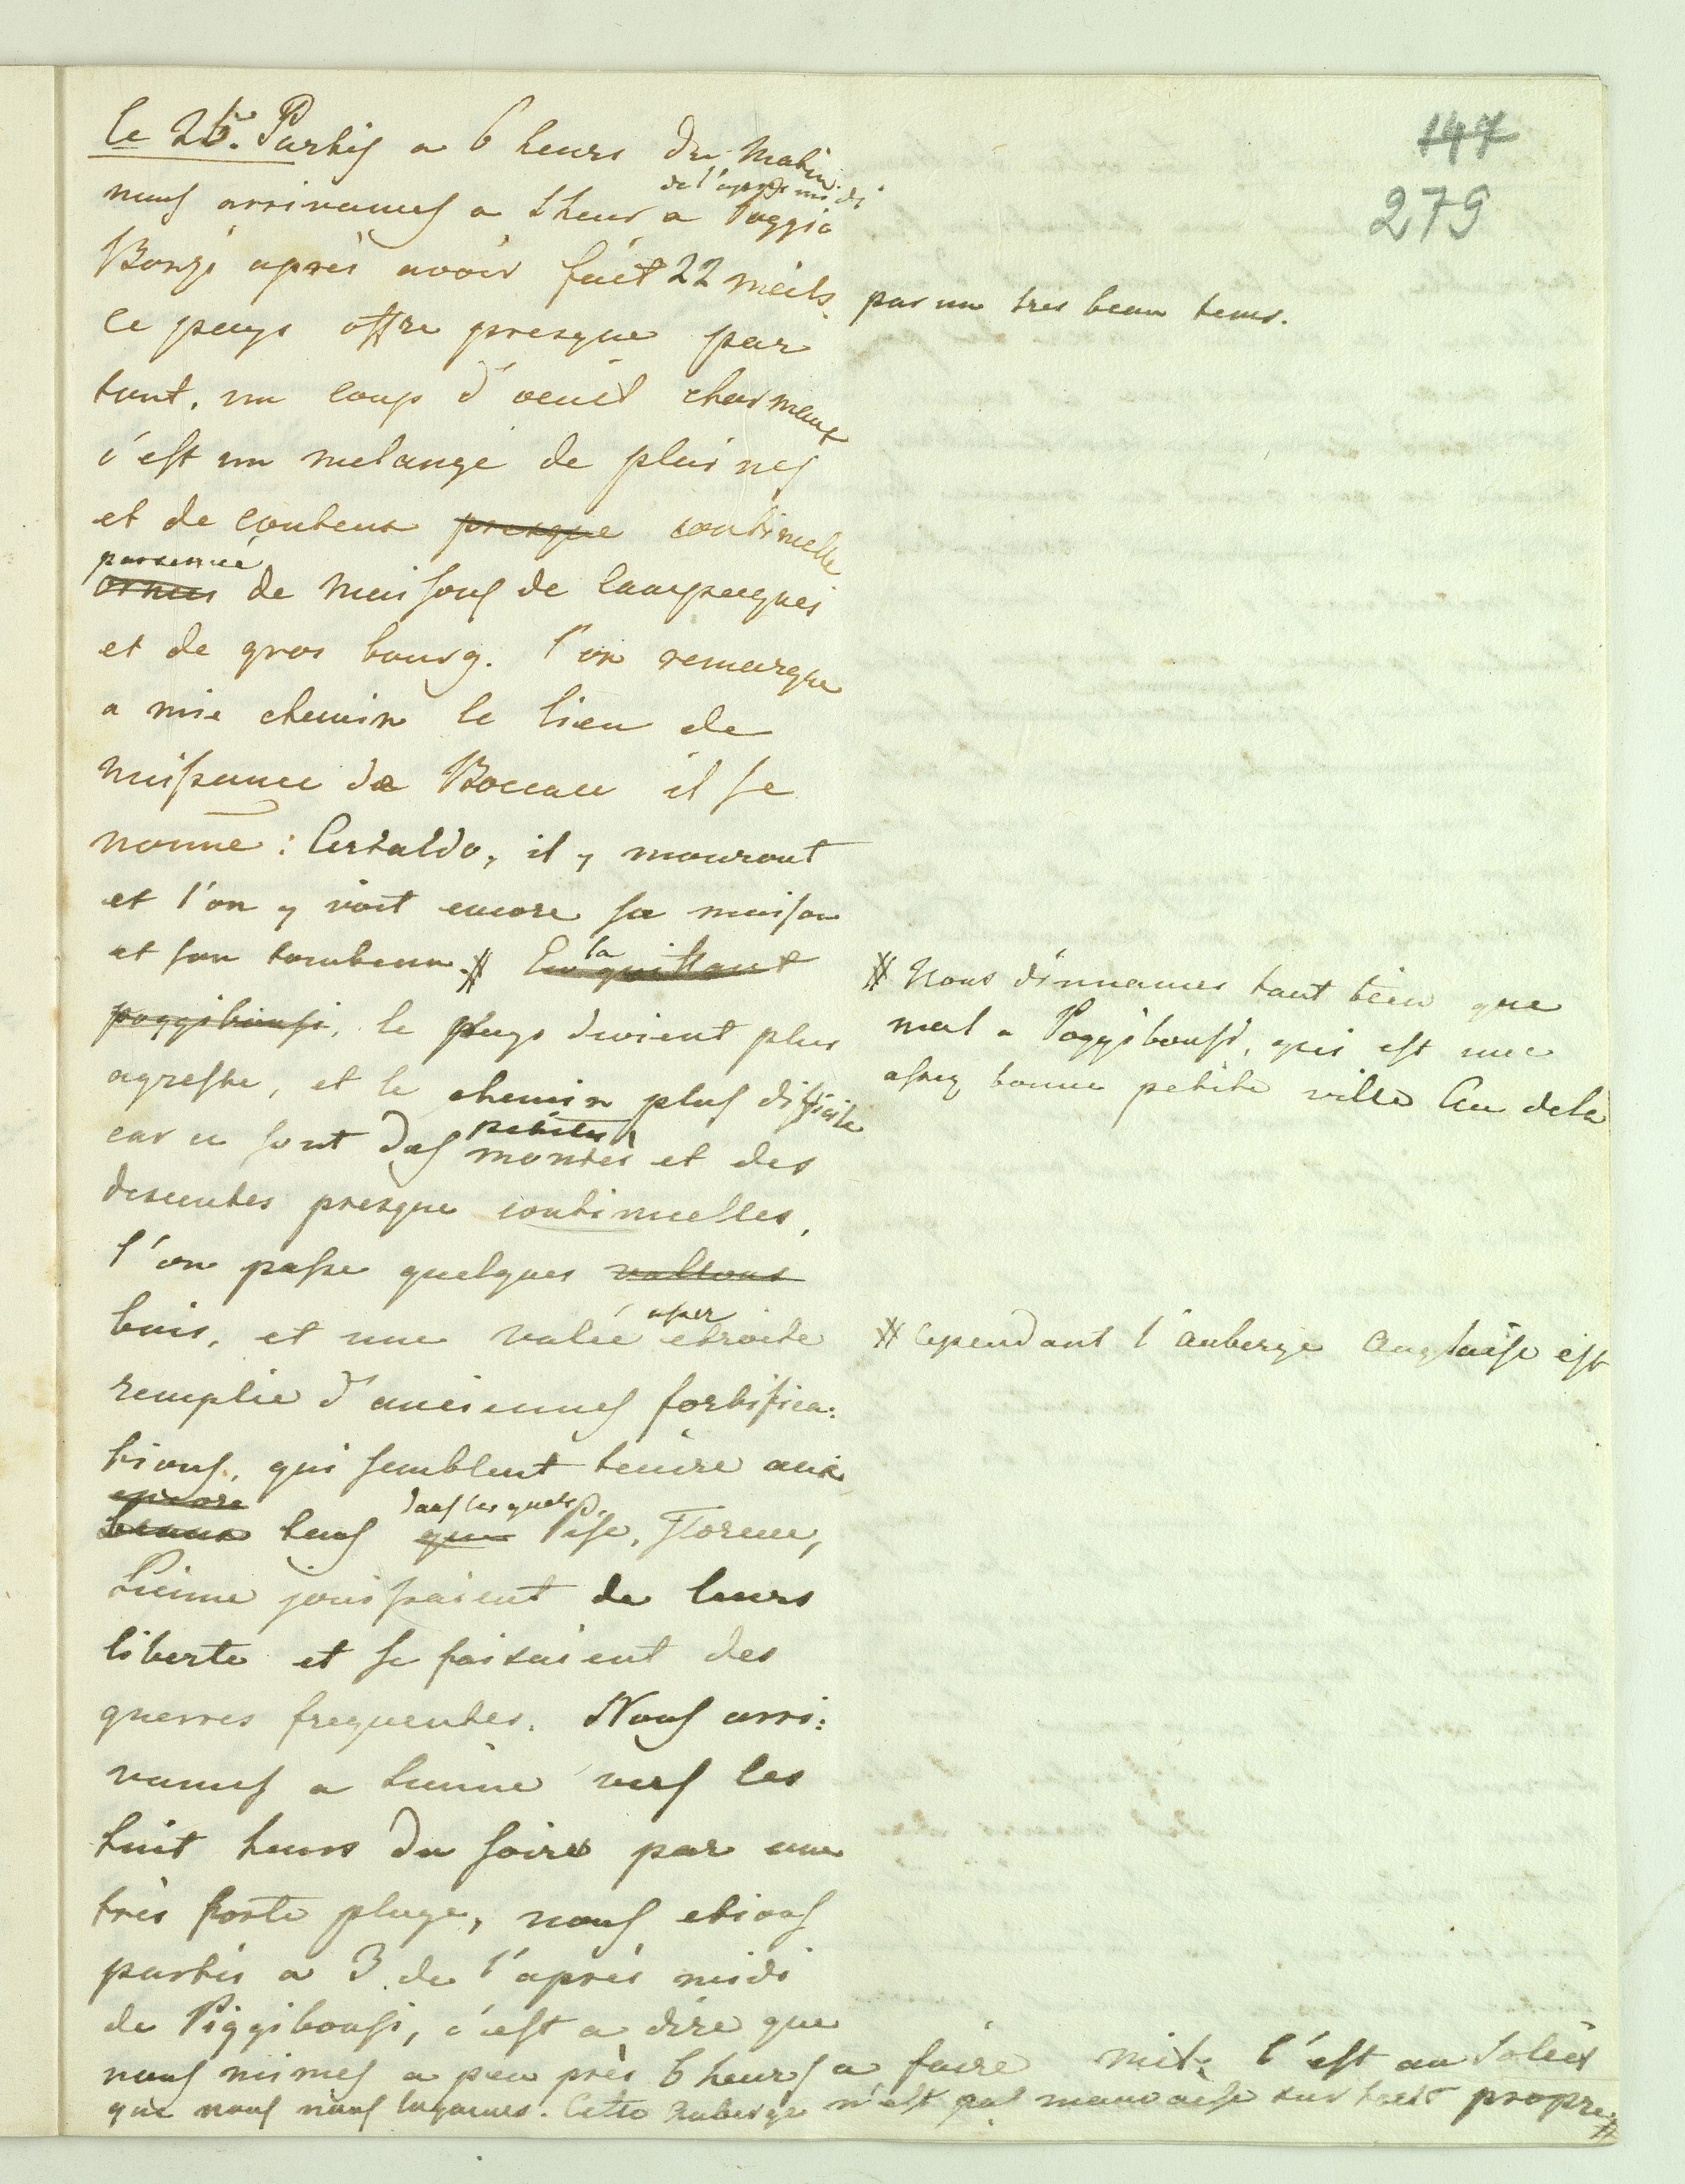 147
279
le 26. Partis a 6 heurs du Matin
de l'apres midi
nous arrivames a 1 heur a Poggio
Bonzi après avoir fait 22 meils
par un tres beau tems.
Ce pays offre presque par
tout, un coup d'oeuil charmant
c'est un melange de plaines
et de couteux presque continelle
parsemé
ornés de maisons de Campagnes
et de gros bourg. l'on remarque
a mie chemin le lieu de
naissance de Boccace il se
nomme : Certaldo, il y mourout
et l'on y voit encore sa maison
et son tombeau # En la quittant
poggibonsi, le pays devient plus
# Nous dinnames tant bien que
mal a Poggibonsi, qui est une
assez bonne petite ville Au dela
agreste, et le chemin plus difficile
petites
car ce sont des montés et des
descentes presque continuelles,
l'on passe quelques vallons
bois, et une valée assez etroite
# Cependant l'auberge Anglaise est
remplie d'anciennes fortifica:
tions, qui semblent tenire aux
encore
beaux tems que dans lesquels Pise, Florence,
Sienne jouissaient de leurs
liberte et se faisaient des
guerres frequentes. Nous arri:
vames a Sienne vers les
huit heurs du soire par une
très forte pluye, nous etions
partis a 3 de l'après midi
de Piggibonsi, c'est a dire que
nous mimes a peu près 6 heurs a faire mit: C'est au Soleil
que nous nous logames. Cette Auberge n'est pas mauvaise surtout propre #